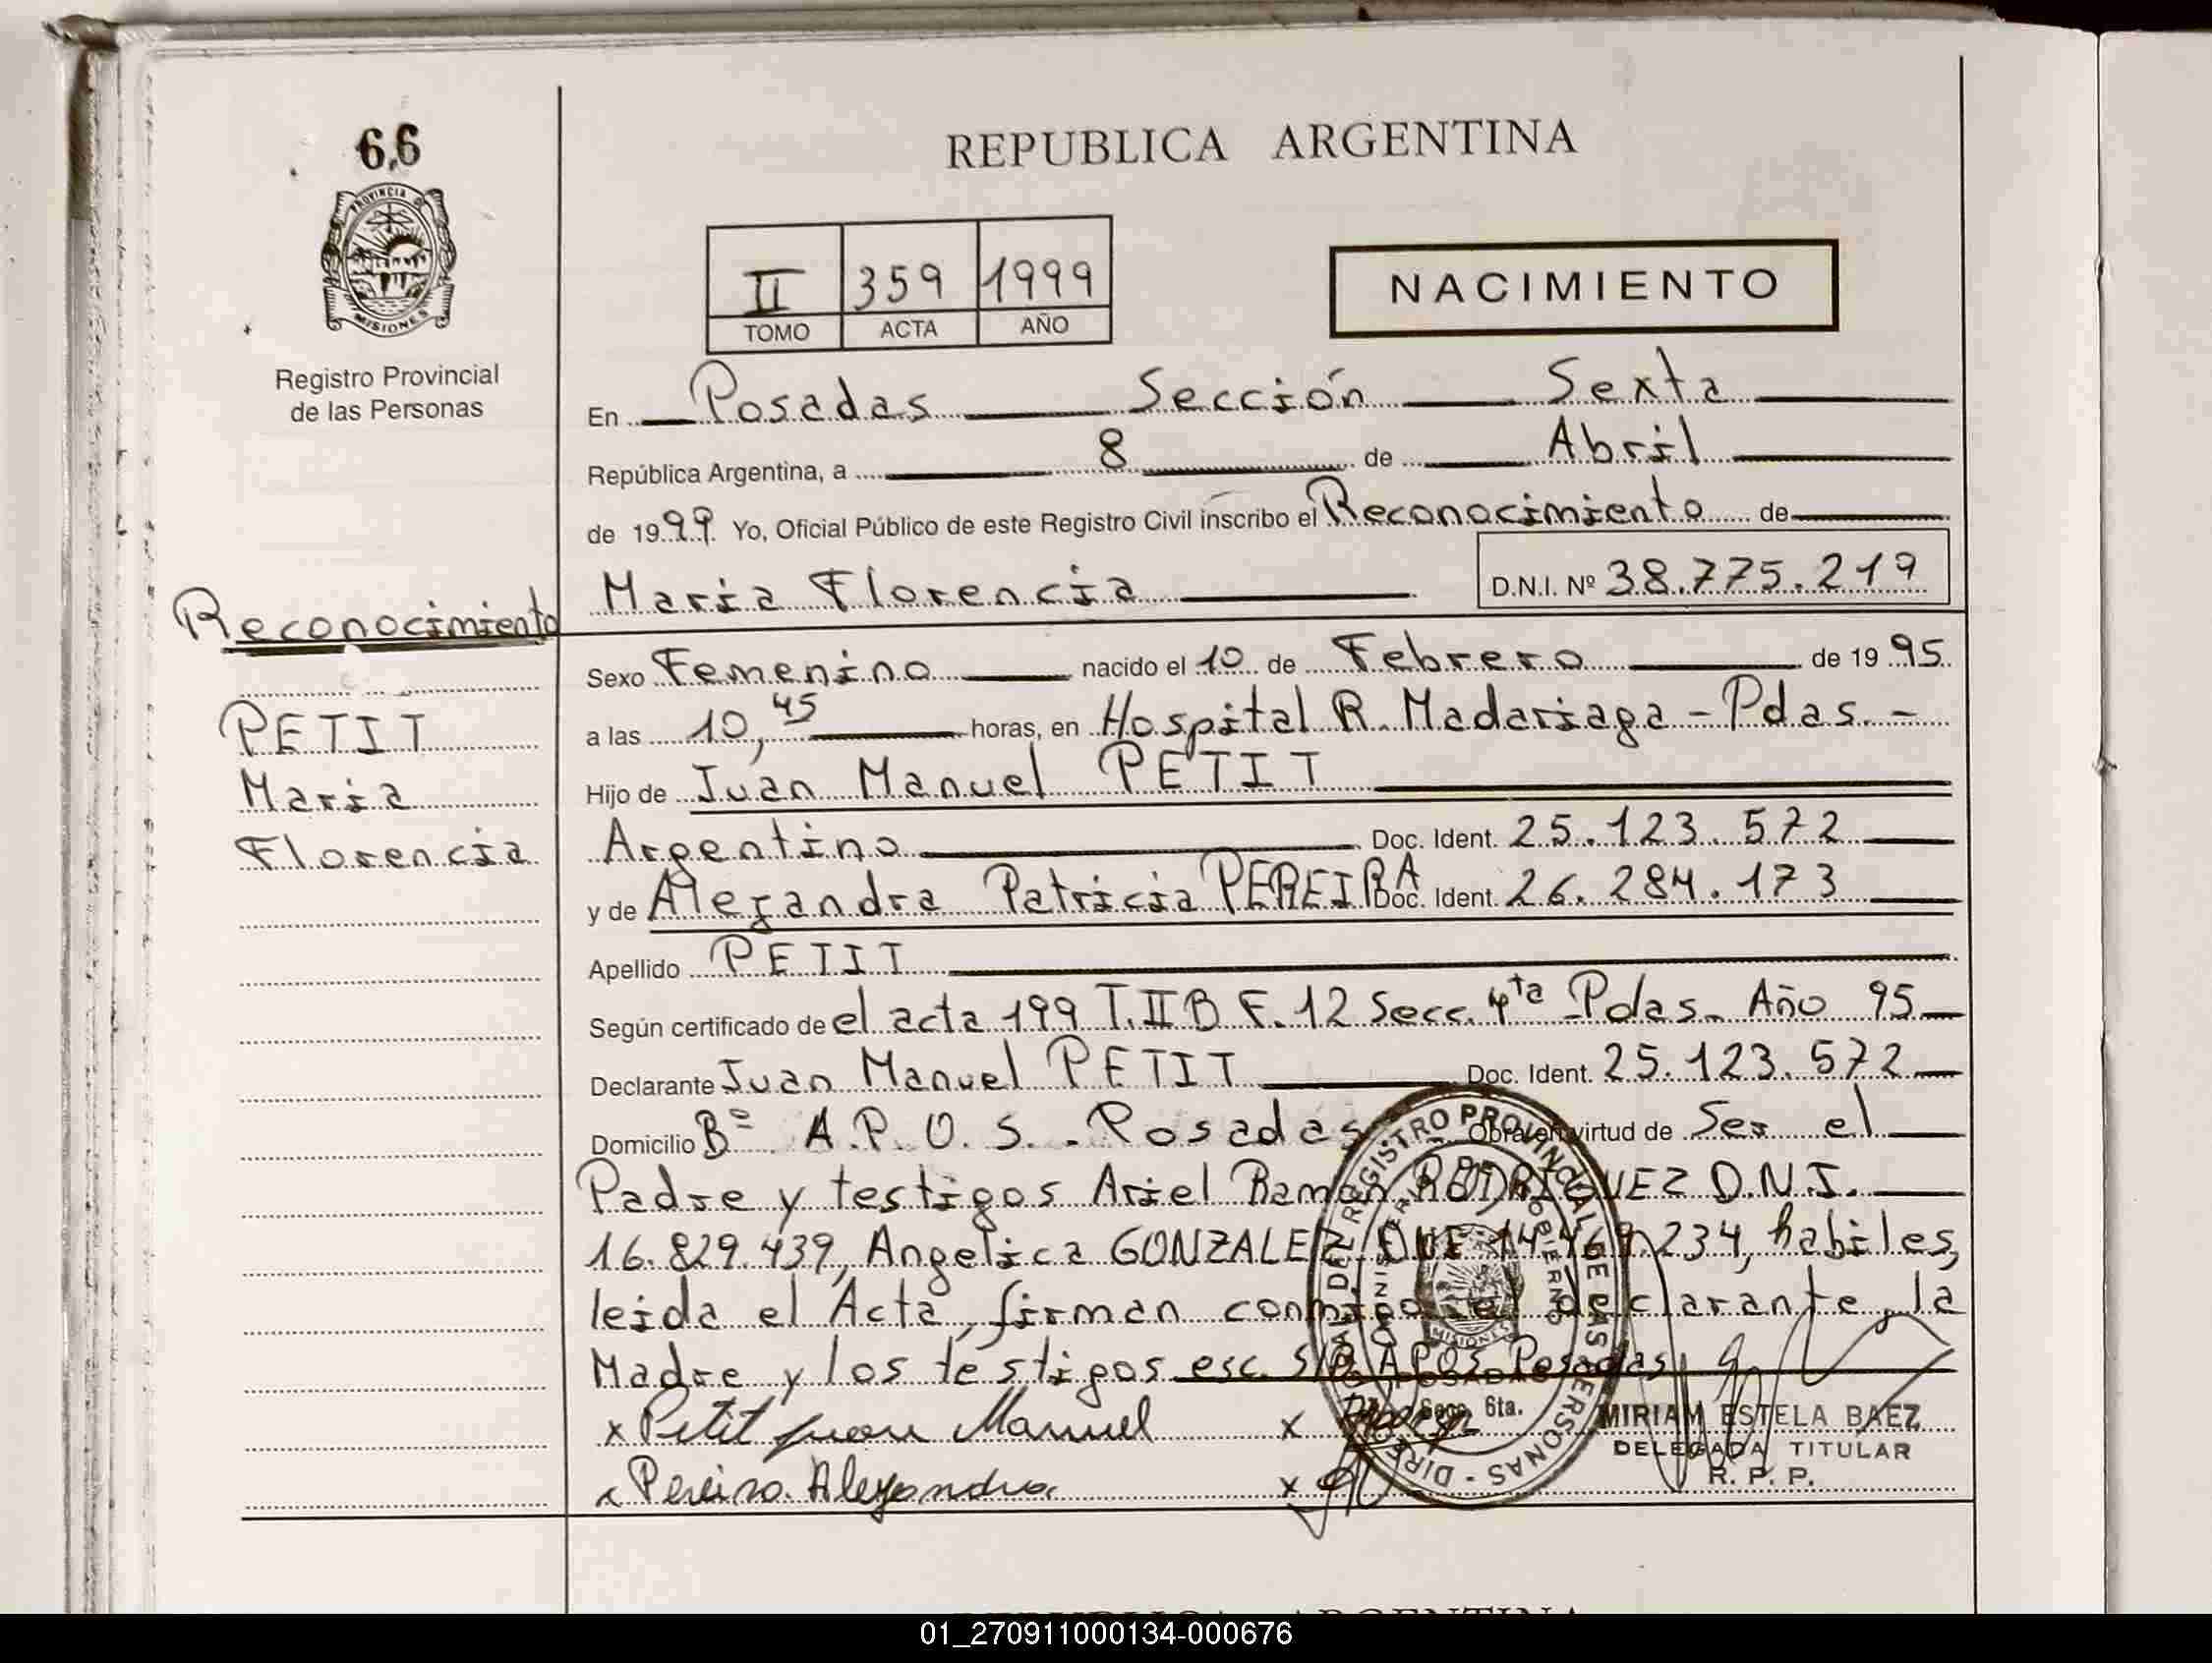 66
PROVINCIA
MISIONES
Registro Provincial
de las Personas
REPUBLICA ARGENTINA
II 359 1999
TOMO ACTA AÑO
NACIMIENTO
En Posadas Sección Sexta
República Argentina, a 8 de Abril
de 1999 Yo, Oficial Público de este Registro Civil inscribo el Reconocimiento de
Maria Florencia D.N.I. Nº 38.775.219
Reconocimiento
PETIT
Maria
Florencia
Sexo Femenino nacido el 10 de Febrero de 1995
a las 10,45 horas, en Hospital R. Madariaga - Pdas. -
Hijo de Juan Manuel PETIT
Argentino Doc. Ident. 25.123.572
y de Alejandra Patricia PEREIRA Doc. Ident. 26.284.173
Apellido PETIT
Según certificado de el acta 199 T.II B F.12 Secc. 4ta Pdas. Año 95
Declarante Juan Manuel PETIT Doc. Ident. 25.123.572
Domicilio Bº A.P.O.S. - Posadas Obra en virtud de Ser el
Padre y testigos Ariel Ramon RODRIGUEZ D.N.I.
16.829.439, Angelica GONZALEZ DNI 14.469.234, habiles,
leida el Acta, firman conmigo el declarante, la
Madre y los testigos esc. S/B APOS Posadas
x Petit Juan Manuel x
x Pereira Alejandra x
REGISTRO PROVINCIAL DE LAS PERSONAS
MISIONES
POSADAS
Secc. 6ta.
MIRIAM ESTELA BAEZ
DELEGADA TITULAR
R. P. P.
01_270911000134-000676